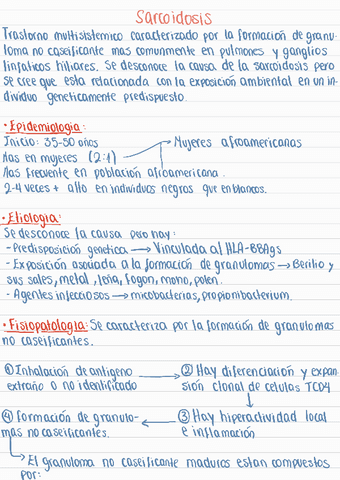 Sarcoidosis
Trastorno multisistemico caracterizado por la formación de granu-
loma no caseificante mas comunmente en pulmones y ganglios
linfaticos hiliares. Se desconoce la causa de la sarcoidosis pero
se cree que esta relacionada con la exposición ambiental en un in-
dividuo geneticamente predispuesto.
• Epidemiologia:
Inicio: 35-50 años
Mas en mujeres (2:1) → Mujeres afroamericanas
Mas frecuente en población afroamericana.
2-4 veces + alto en individuos negros que en blancos.
• Etiologia:
Se desconoce la causa pero hay:
- Predisposición genetica → Vinculada al HLA-
- Exposición asociada a la formación de granulomas → Berilio y
sus sales, metal, leña, fogon, moho, polen.
- Agentes infecciosos → micobacterias, propionibacterium.
• Fisiopatologia: Se caracteriza por la formación de granulomas
no caseificantes.
① Inhalación de antigeno → ② Hay diferenciación y expan
extraño o no identificado sión clonal de celulas TCD4
④ Formación de granulo- ← ③ Hay hiperactividad local
mas no caseificantes. e inflamación
→ El granuloma no caseificante maduros estan compuestos
por: